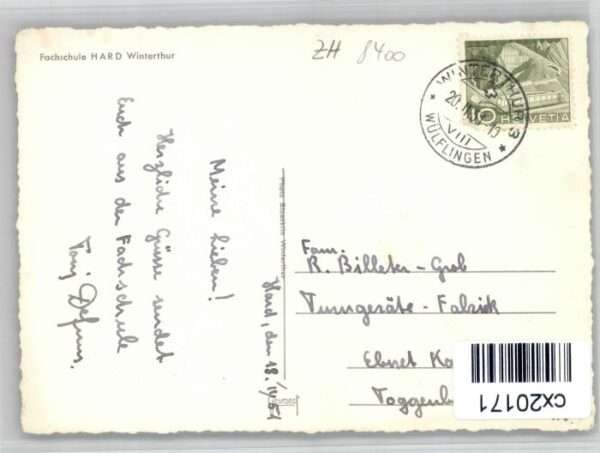 Fachschule HARD Winterthur
ZH 8400
WINTERTHUR 3
VIII
WÜLFLINGEN
HELVETIA
Hard, den 18.
Meine Lieben!
Herzliche Grüsse sendet
Euch aus der Fachschule
Toni
Fam.
R. Billeter - Grob
Turngeräte - Fabrik
Ebnet Ka
Toggenb
cx20171